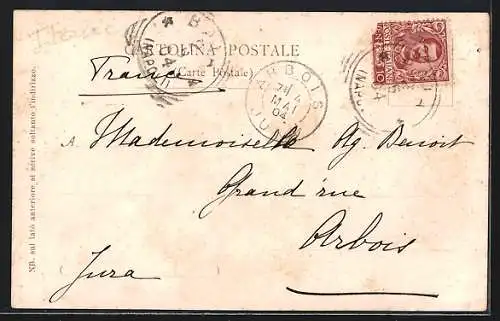 CARTOLINA POSTALE
(Carte Postale)
France
ARBOIS
4
MAI
04
JURA
(NAPOLI)
A Mademoiselle Ag. Benoit
Grand rue
Arbois
Jura
NB. sul lato anteriore si scrive soltanto l'indirizzo.